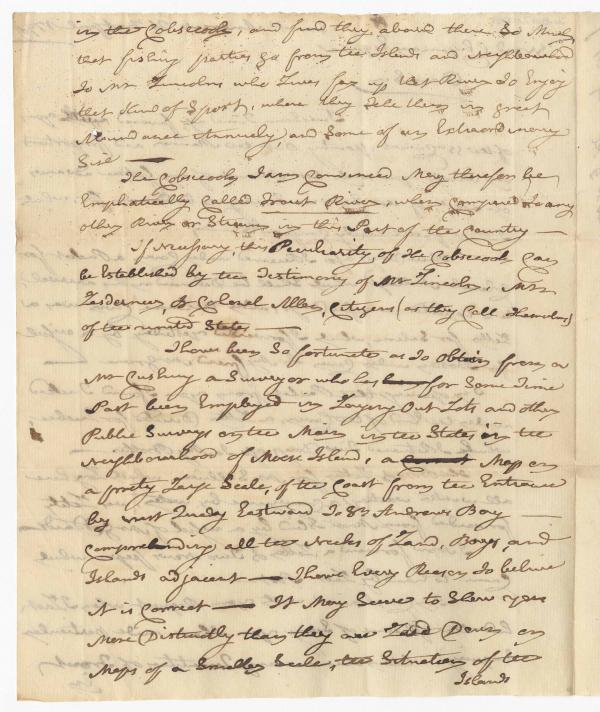 in the Cobscook, and find they abound there so Much
that fishing parties go from the Islands and Neighbourhood
To Mr Lincolns who Lives far up that River To Enjoy
that Kind of Sport, where they Take them in great
Abundance Annually, and Some of an Extraordinary
Size —
The Cobscook I am Convinced May therefore be
Emphatically Called Trout River, when Compared To any
other River or Stream in this Part of the Country —
if Necessary, this Peculiarity of the Cobscook Can
be Established by the Testimony of Mr Lincoln, Mr
& Colonel Allen, Citizens (as they Call themselves)
of the united States —
I have been So fortunate as To obtain from a
Mr Cushing a Surveyor who has for Some Time
Past been Employed in Laying Out Lots and other
Public Surveys on the Main in the States in the
Neighbourhood of Moose Island, a Map on
a pretty Large Scale, of the Coast from the Entrance
by west Quady Eastward To St Andrews Bay —
Comprehending all the Necks of Land, Bays, and
Islands adjacent — I have Every Reason To believe
it is Correct — It May Serve to Shew you
More Distinctly than they are Laid Down on
Maps of a Smaller Scale, the Situation of the
Islands